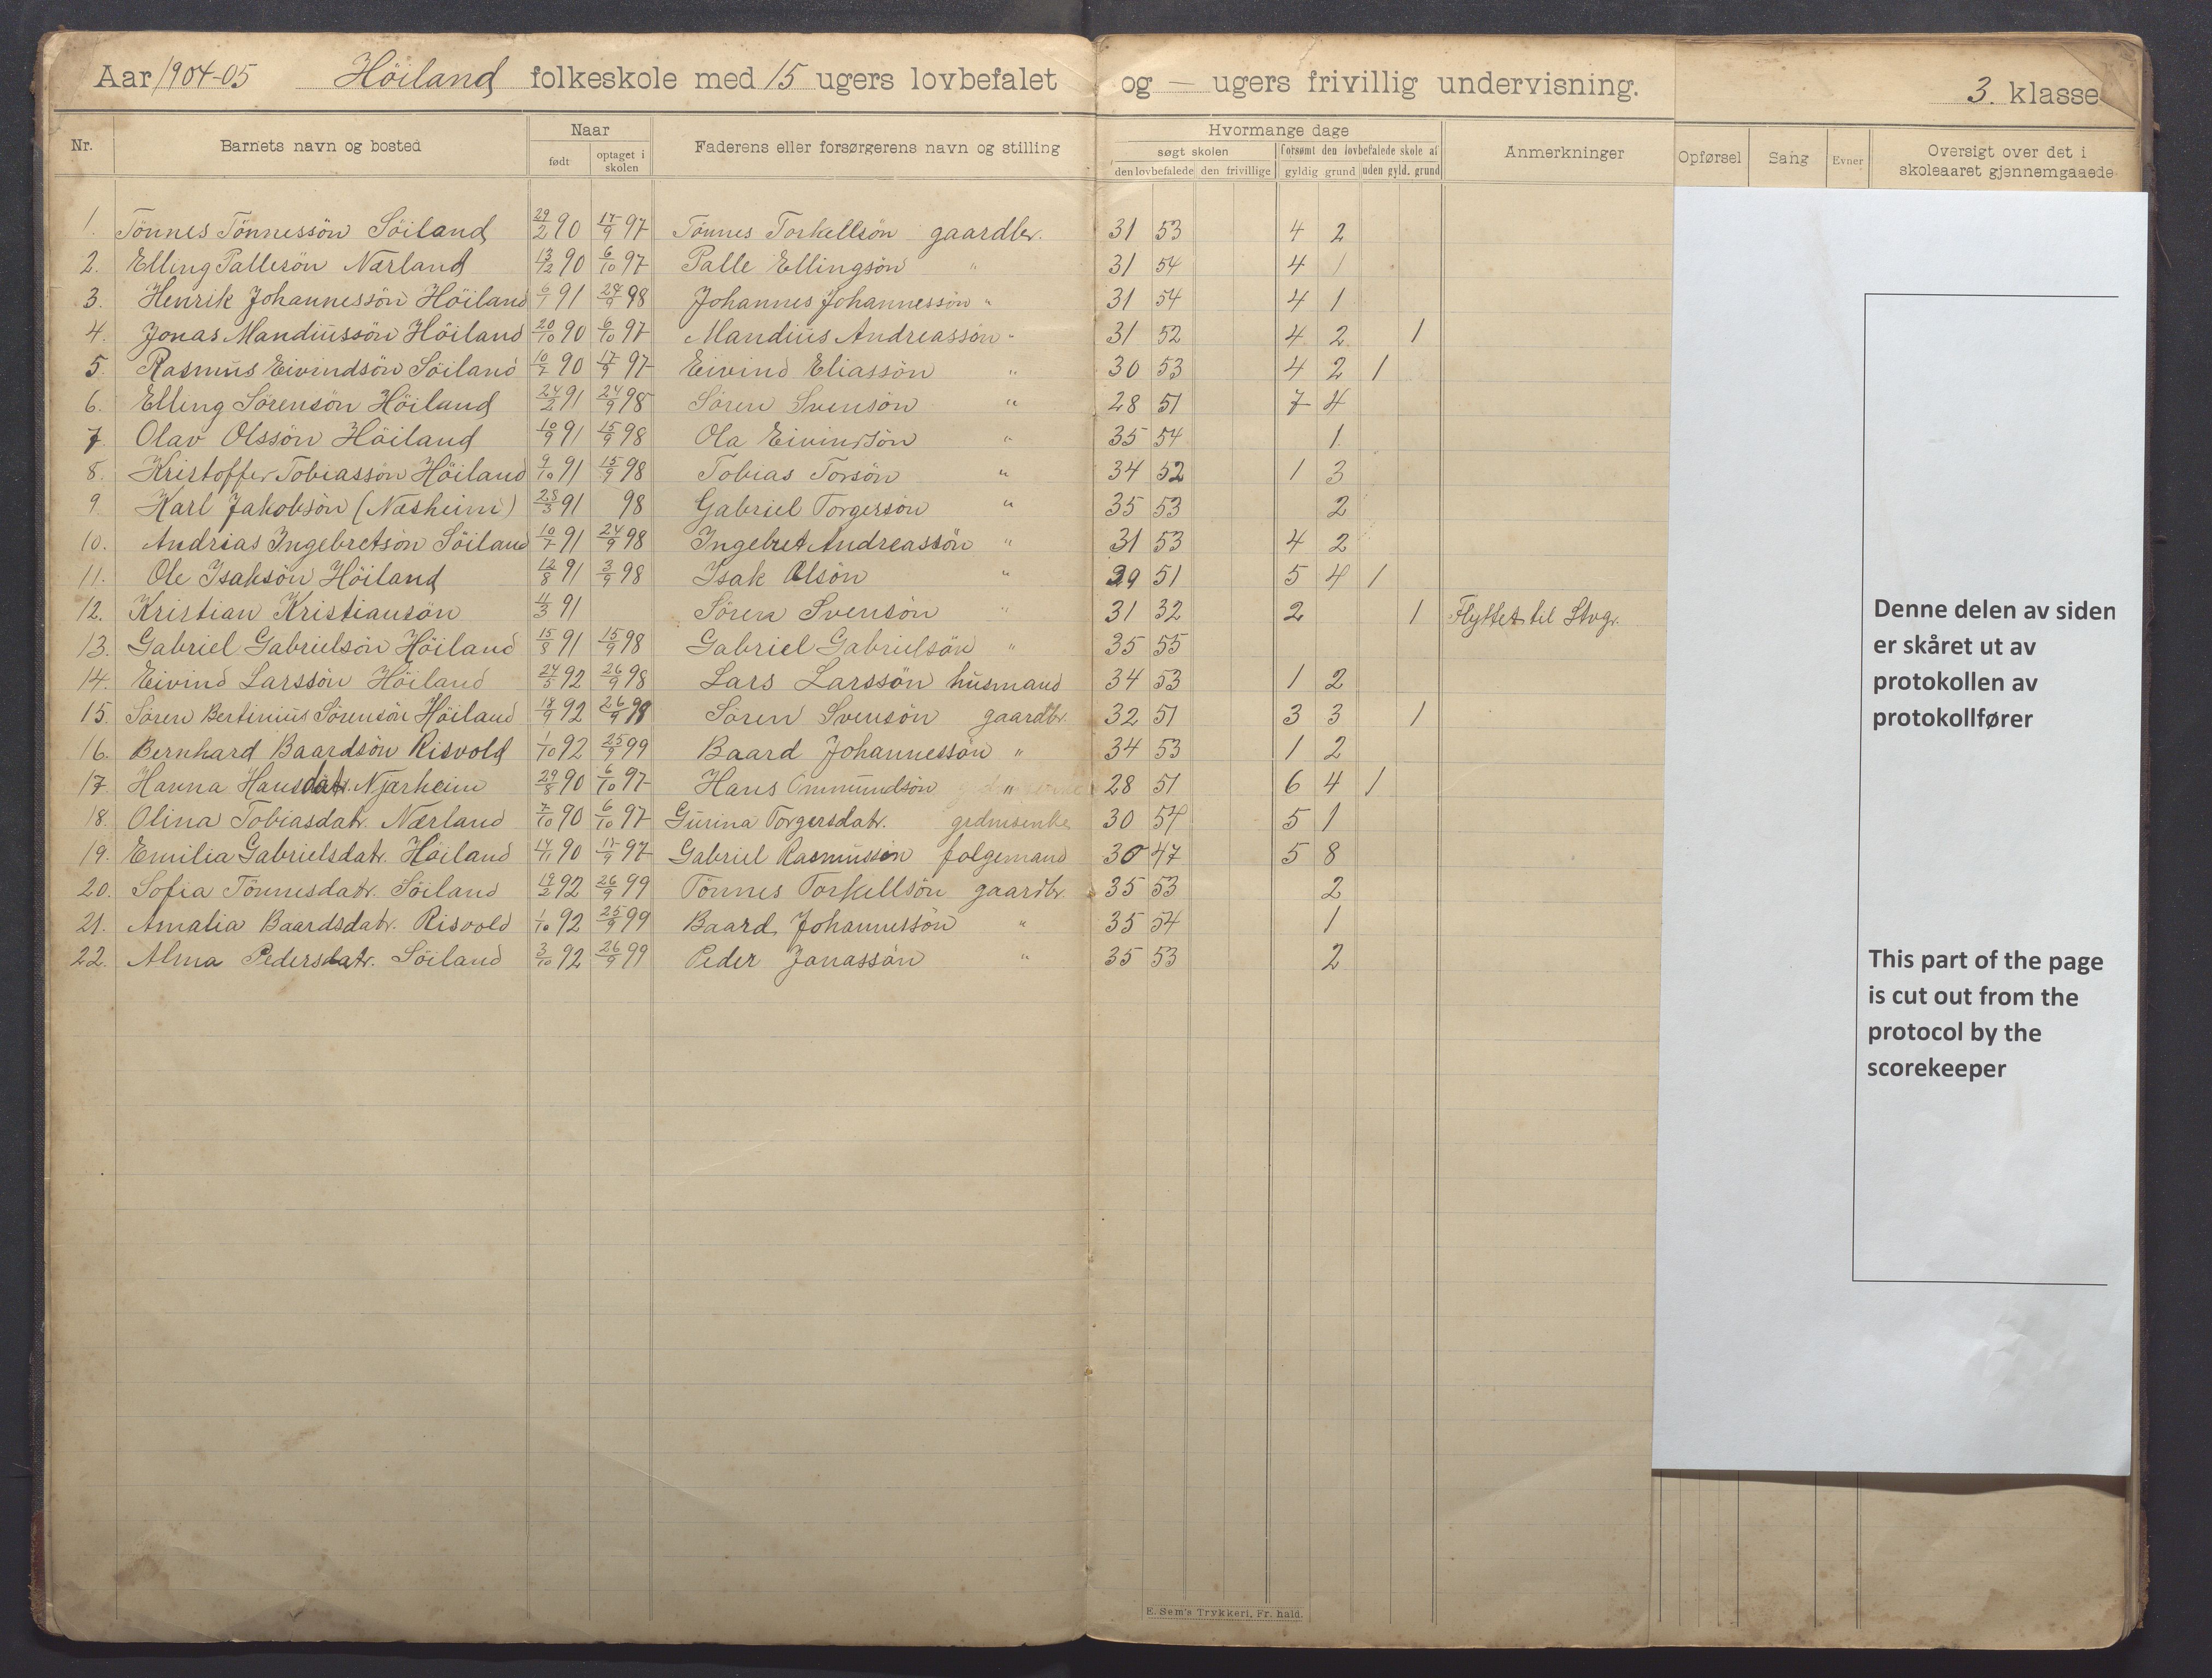 Aar 1904-05 Höiland folkeskole med 15 ugers lovbefalet og — ugers frivillig undervisning. 3. klasse
Nr. Barnets navn og bosted Naar født optaget i skolen Faderens eller forsørgerens navn og stilling Hvormange dage søgt skolen den lovbefalede den frivillige forsømt den lovbefalede skole af gyldig grund uden gyld. grund Anmerkninger Opførsel Sang Evner Oversigt over det i skoleaaret gjennemgaaede
1. Tönnes Tönnessön Söiland 29/2 90 17/9 97 Tönnes Torkellsön gaardbr. 31 53 4 2
2. Elling Pallesön Nærland 13/12 90 6/10 97 Palle Ellingsön " 31 54 4 1
3. Henrik Johannessön Höiland 6/1 91 24/9 98 Johannes Johannessön " 31 54 4 1
4. Jonas Mandiussön Höiland 20/10 90 6/10 97 Mandius Andreassön " 31 52 4 2 1
5. Rasmus Eivindsön Söiland 10/7 90 17/9 97 Eivind Eliassön " 30 53 4 2 1
6. Elling Sörensön Höiland 24/2 91 24/9 98 Sören Svensön " 28 51 7 4
7. Olav Olssön Höiland 10/9 91 15/9 98 Ola Eivindsön " 35 54 1
8. Kristoffer Tobiassön Höiland 9/10 91 15/9 98 Tobias Torsön " 34 52 1 3
9 Karl Jakobsön (Næsheim) 28/3 91 98 Gabriel Torgersön " 35 53 2
10. Andrias Ingebretsön Söiland 10/7 91 24/9 98 Ingebret Andreassön " 31 53 4 2
11. Ole Isaksön Höiland 12/8 91 3/9 98 Isak Olsön " 29 51 5 4 1
12. Kristian Kristiansön 4/3 91 Sören Svensön " 31 32 2 1 Flyttet til Stvgr.
13. Gabriel Gabrielsön Höiland 15/8 91 15/9 98 Gabriel Gabrielsön " 35 55
14. Eivind Larssön Höiland 24/5 92 26/9 98 Lars Larssön husmand 34 53 1 2
15. Sören Bertinius Sörensön Höiland 18/9 92 26/9 98 Sören Svensön gaardbr. 32 51 3 3 1
16. Bernhard Baardsön Risvold 1/10 92 25/9 99 Baard Johannessön " 34 53 1 2
17. Hanna Hansdatr. Njærheim 29/8 90 6/10 97 Hans Ommundsön " 28 51 6 4 1
18. Olina Tobiasdatr. Nærland 7/10 90 6/10 97 Gurina Torgersdatr. grdmsenke 30 54 5 1
19. Emilia Gabrielsdatr. Höiland 14/11 90 17/9 97 Gabriel Rasmussön folgemand 30 47 5 8
20. Sofia Tönnesdatr. Söiland 19/2 92 26/9 99 Tönnes Torkellsön gaardbr. 35 53 2
21. Amalia Baardsdatr. Risvold 1/10 92 25/9 99 Baard Johannessön " 35 54 1
22. Alma Pedersdatr. Söiland 3/10 92 26/9 99 Peder Jonassön " 35 53 2
Denne delen av siden
er skåret ut av
protokollen av
protokollfører
This part of the page
is cut out from the
protocol by the
scorekeeper
E. Sem's Trykkeri, Fr. hald.